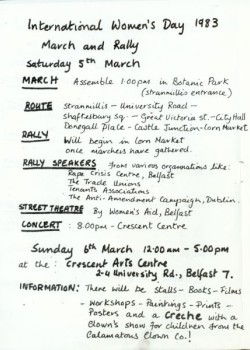 International Women's Day 1983
March and Rally
Saturday 5th March
MARCH Assemble 1.00pm in Botanic Park
(Stranmillis entrance)
ROUTE Stranmillis - University Road -
Shaftesbury Sq. - Great Victoria St. - City Hall
Donegall Place - Castle Junction - Corn Market
RALLY Will begin in Corn Market
once marchers have gathered.
RALLY SPEAKERS from various organisations like:
Rape Crisis Centre, Belfast
The Trade Unions
Tenants Associations
The Anti-Amendment Campaign, Dublin.
STREET THEATRE By Women's Aid, Belfast
CONCERT : 8.00pm - Crescent Centre
Sunday 6th March 12:00am - 5.00pm
at the : Crescent Arts Centre
2-4 University Rd., Belfast 7.
INFORMATION: There will be Stalls - Books - Films
- Workshops - Paintings - Prints -
Posters and a Crèche with a
Clown's show for children from the
Calamatous Clown Co.!